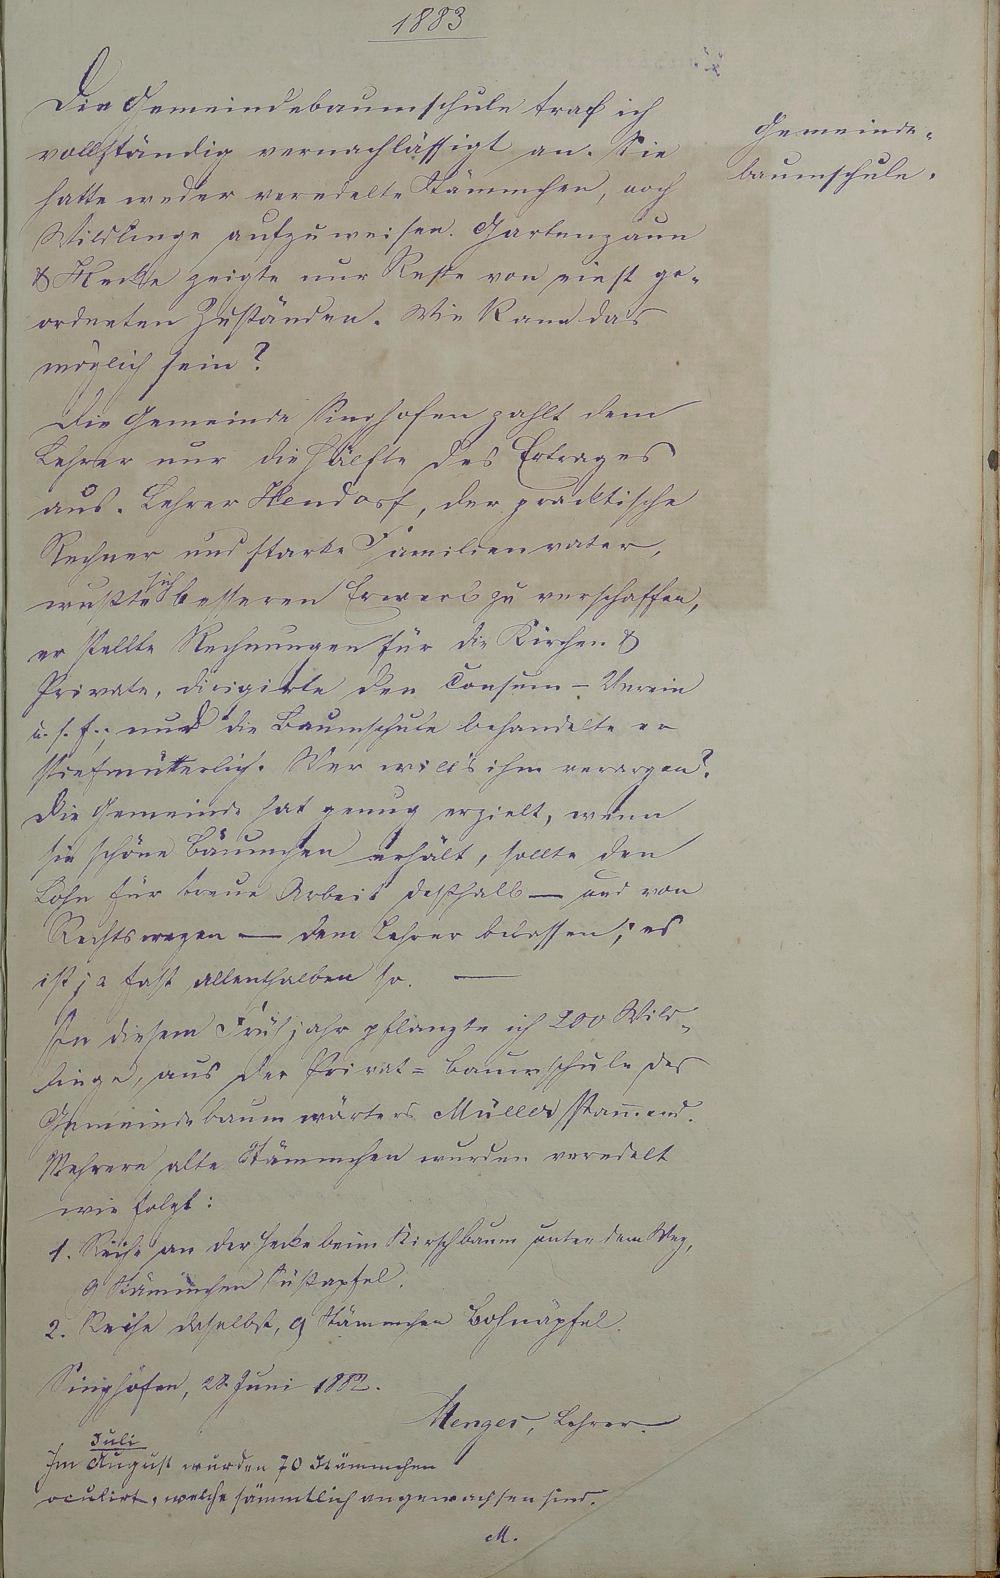 1883
Gemeinde-
baumschule.
Die Gemeindebaumschule traf ich
vollständig vernachlässigt an. Sie
hatte weder veredelte Stämmchen, noch
Wildlinge aufzuweisen. Gartenzaun
& Hecke zeigte nur Reste von einst ge-
ordneten Zuständen. Wie kann das
möglich sein?
Die Gemeinde Singhofen zahlt dem
Lehrer nur die Hälfte des Ertrages
aus. Lehrer Hendorf, der practische
Rechner und starke Familienvater,
wußte sich besseren Erwerb zu verschaffen,
er stellte Rechnungen für die Kirchen &
Private, dirigirte den Consum-Verein
u. s. f.; und die Baumschule behandelte er
stiefmütterlich. Wer will's ihm verargen?
Die Gemeinde hat genug erzielt, wenn
sie schöne Bäumchen erhält, sollte den
Lohn für treue Arbeit deßhalb — und von
Rechtswegen — dem Lehrer belassen; es
ist ja fast allenthalben so. —
In diesem Frühjahr pflanzte ich 200 Wild-
linge, aus der Privat-Baumschule des
Gemeindebaumwärters Müller stammend.
Mehrere alte Stämmchen wurden veredelt
wie folgt:
1. Reihe an der Hecke beim Kirschbaum unter dem Weg,
9 Stämmchen Süßapfel.
2. Reihe daselbst, 9 Stämmchen Bohnäpfel.
Singhofen, 28. Juni 1882.
Menges, Lehrer.
Juli
Im August wurden 70 Stämmchen
oculirt, welche sämmtlich angewachsen sind.
M.